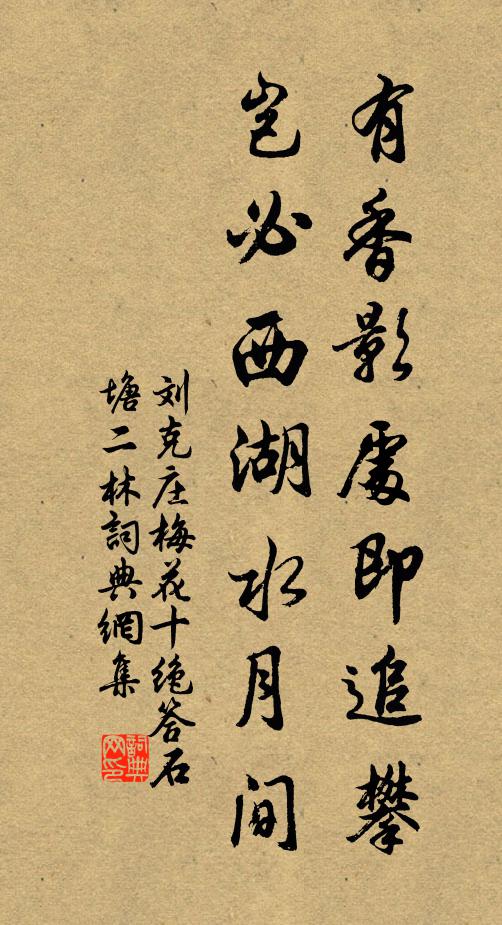 有香影處即追攀
豈必西湖水月間
刘克庄梅花十绝答石
塘二林詞典網集
詞典网印